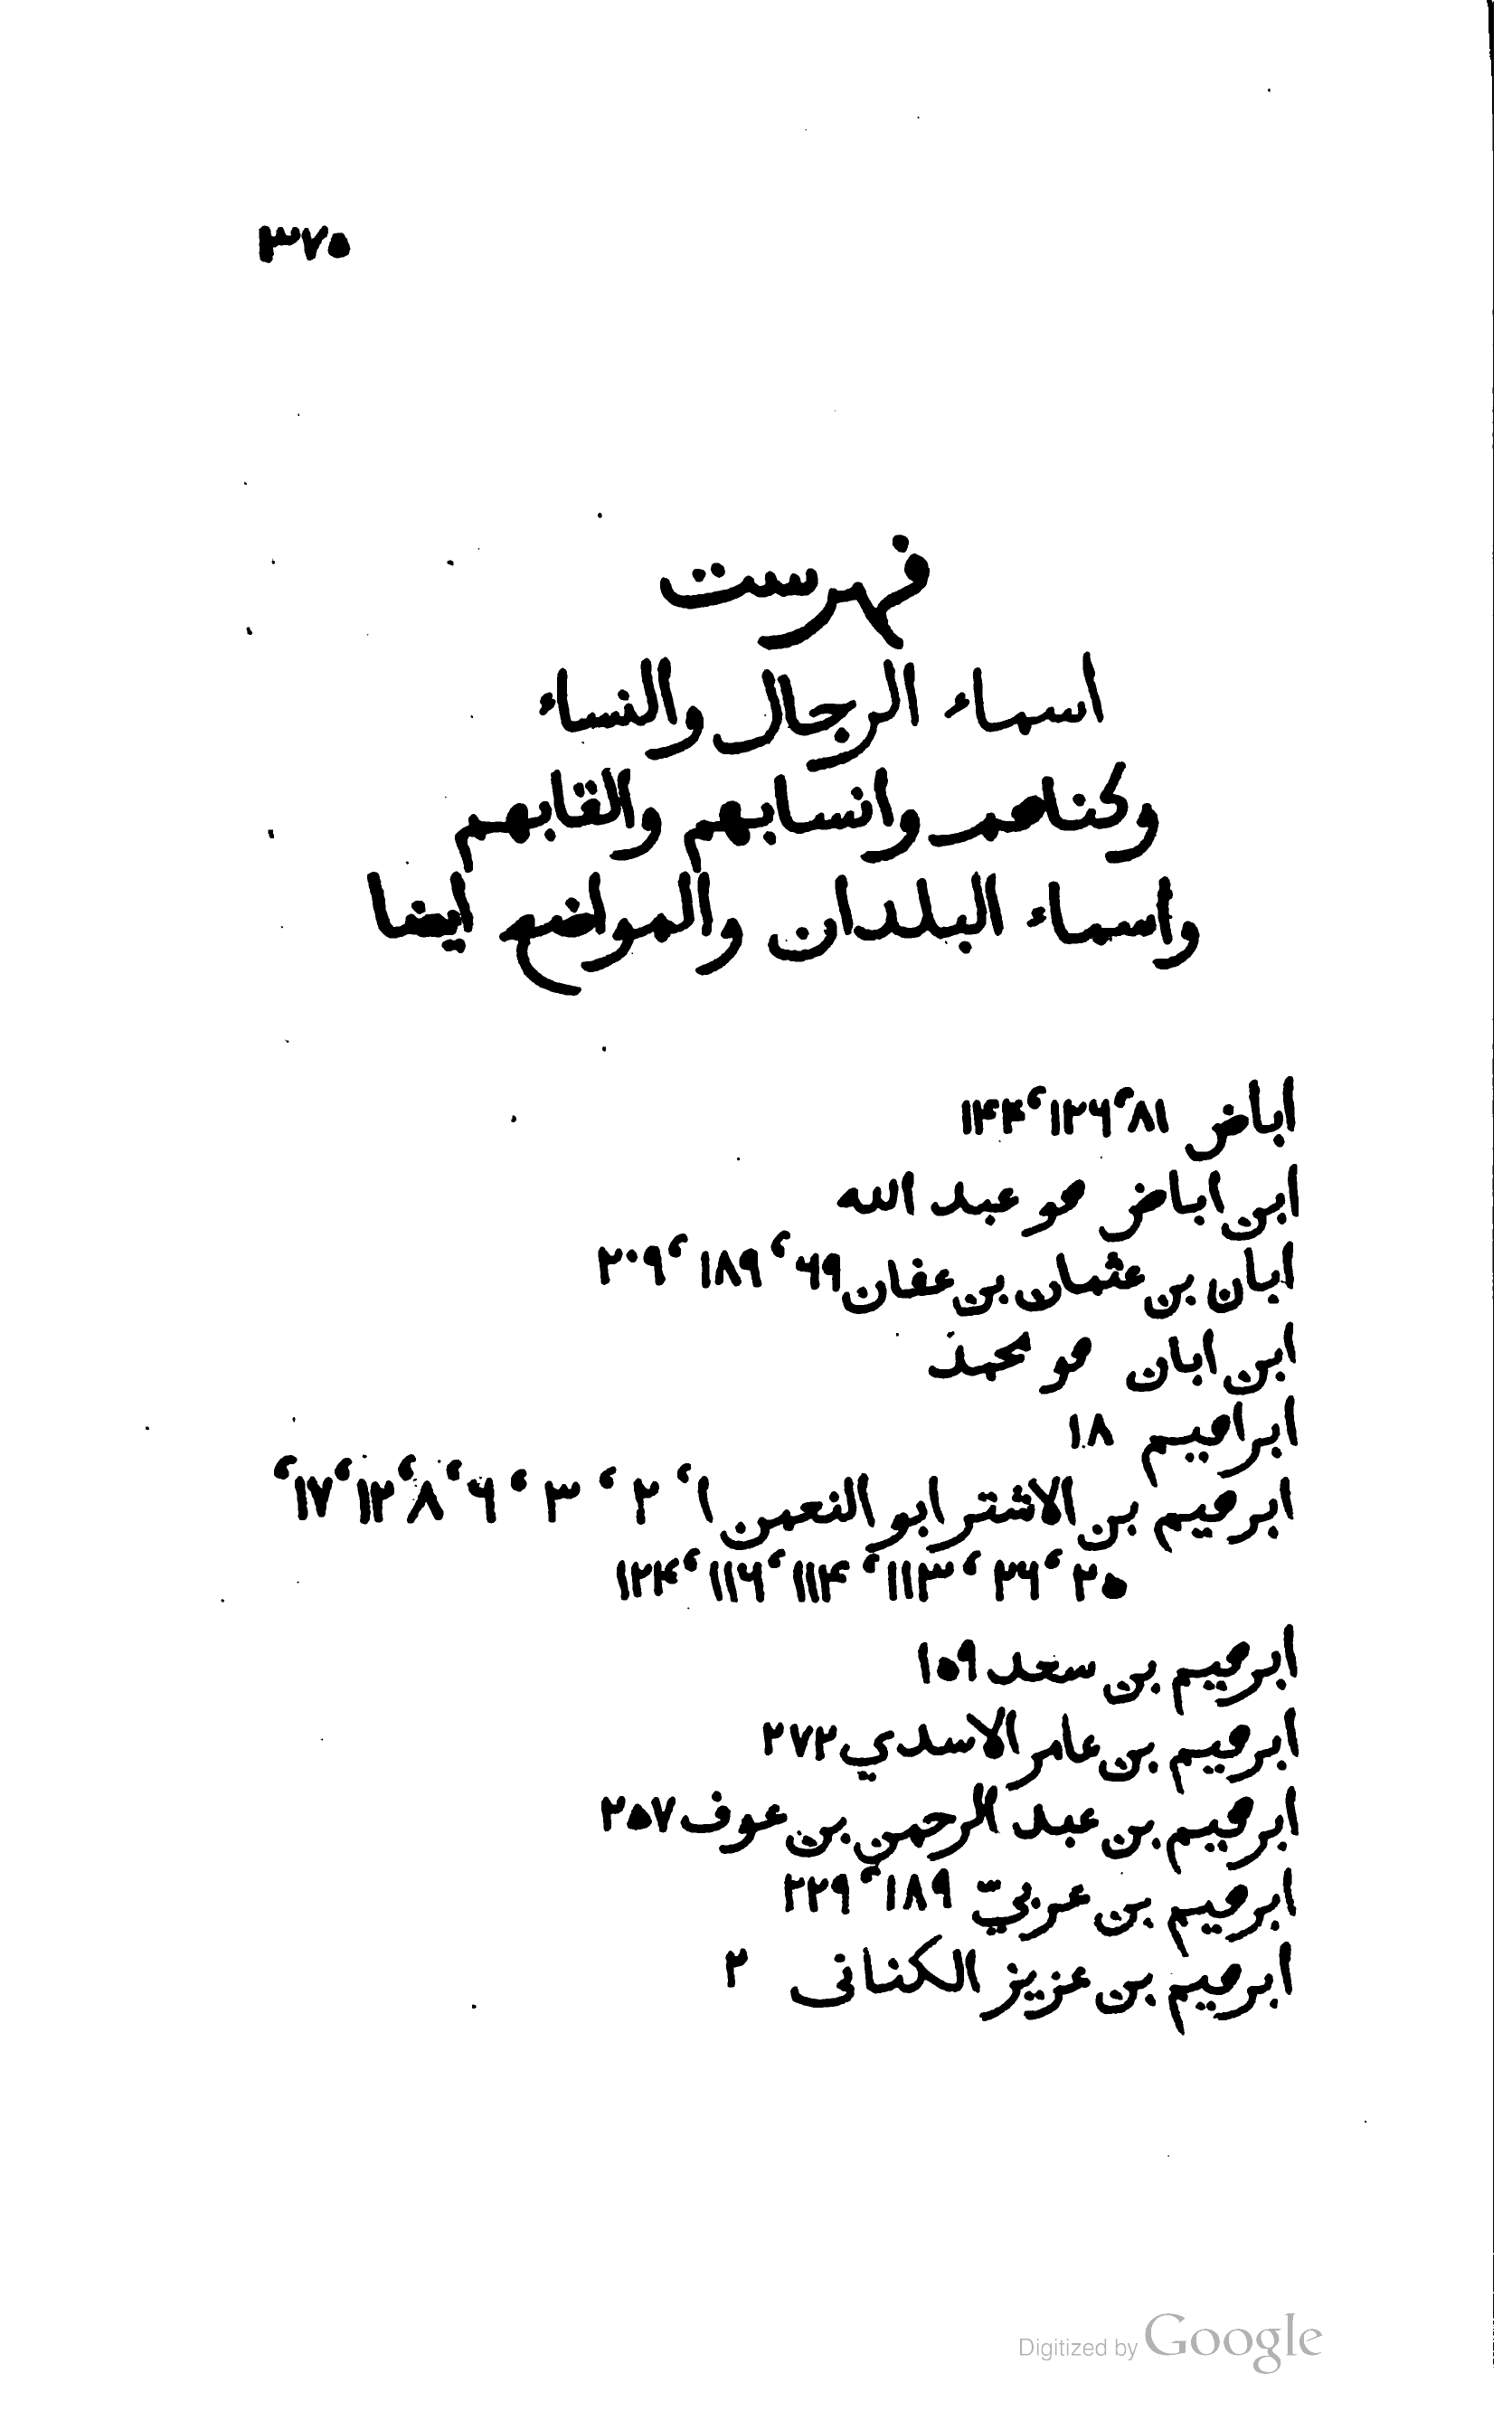 ٣٧٥
فهرست
اسماء الرجال والنساء
وكناهم وانسابهم والقابهم
واسماء البلدان والمواضع ايضا
اباض ٨١، ١٢٦، ١٤٤
ابن اباض هو عبد الله
ابان بن عثمان بن عفان ٦٩، ١٨٩، ٢٠٩
ابن ابان هو محمد
ابراهيم ١٨
ابرهيم بن الاشتر ابو النعمن ١، ٢، ٣، ٦، ٨، ١٢، ١٧،
٢٥، ٢٦، ١١٣، ١١٤، ١١٦، ١٢٤
ابرهيم بن سعد ١٥٩
ابرهيم بن عامر الاسدي ٢٧٢
ابرهيم بن عبد الرحمن بن عوف ٢٥٧
ابرهيم بن عربيّ ١٨٩، ٢٢٩
ابرهيم بن عزيز الكنانى ٢
Digitized by Google